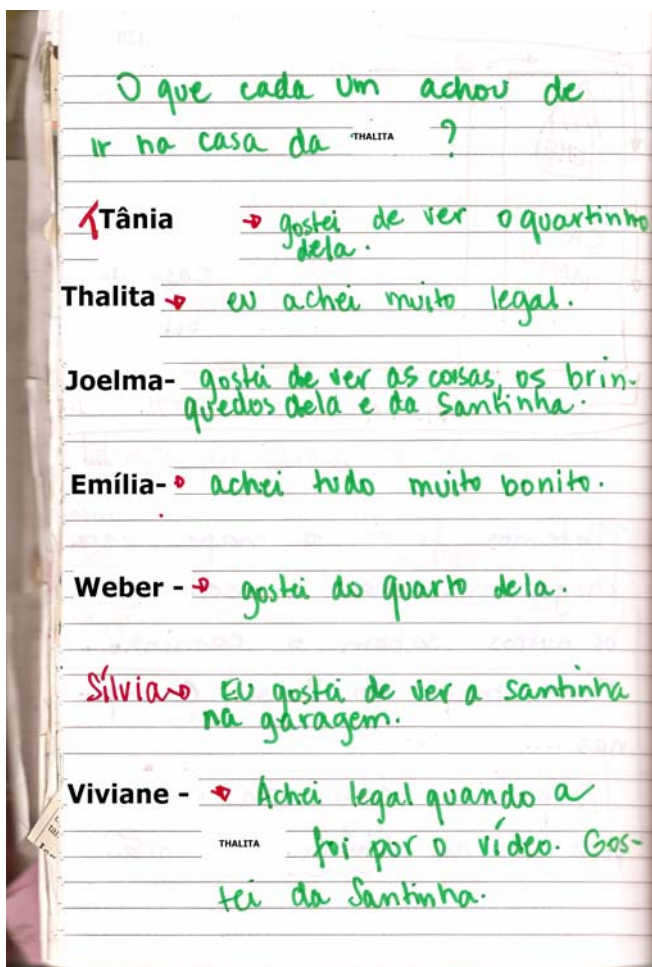 O que cada um achou de
ir na casa da THALITA ?
Tânia → gostei de ver o quartinho
dela.
Thalita → eu achei muito legal.
Joelma- gostei de ver as coisas, os brin-
quedos dela e da Santinha.
Emília- achei tudo muito bonito.
Weber - → gostei do quarto dela.
Sílvia → Eu gostei de ver a santinha
na garagem.
Viviane - → Achei legal quando a
THALITA foi por o vídeo. Gos-
tei da Santinha.